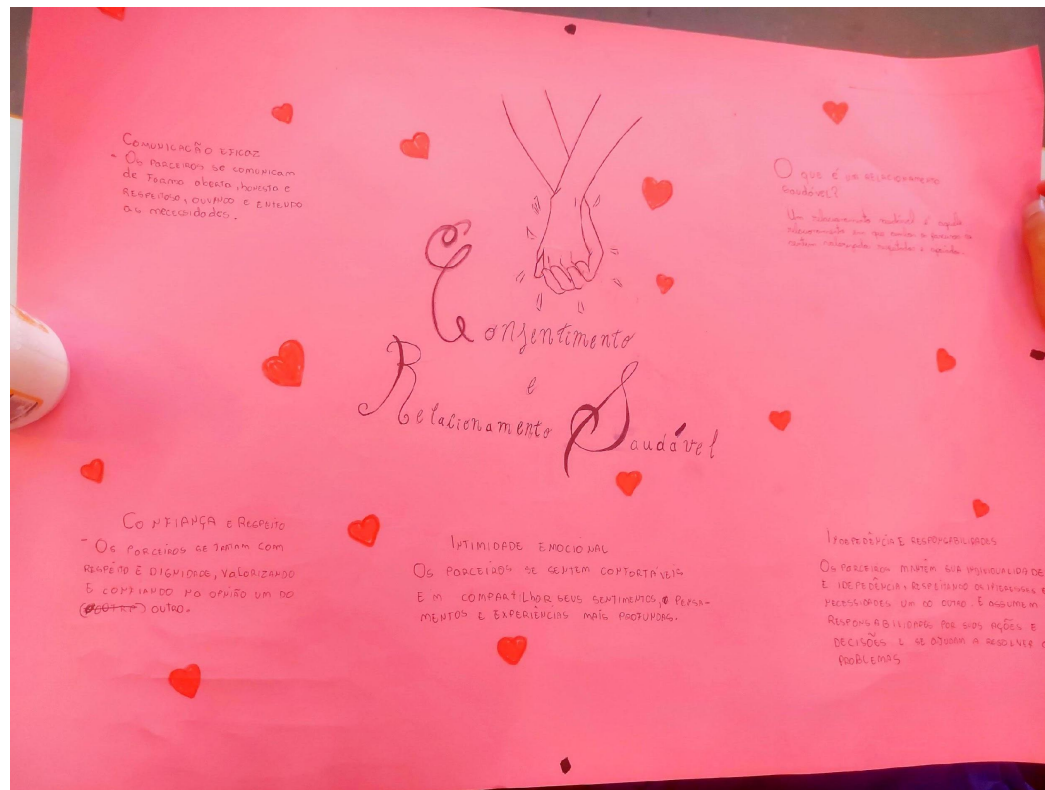 Comunicação eficaz
- Os parceiros se comunicam
de forma aberta, honesta e
respeitosa, ouvindo e entendo
as necessidades.
O que é um relacionamento
saudável?
Um relacionamento saudável é aquele
relacionamento em que ambos os parceiros se
sentem respeitados e
Consentimento
e
Relacionamento Saudável
Confiança e Respeito
- Os parceiros se tratam com
respeito e dignidade, valorizando
e confiando na opnião um do
outro.
Intimidade emocional
Os parceiros se sentem confortáveis
em compartilhar seus sentimentos, pensa-
mentos e experiências mais profundas.
Indepedência e responsabilidades
Os parceiros mantém sua individualidade
e idepedência, respeitando os interesses e
necessidades um do outro. E assumem
responsabilidades por suas ações e
decisões e se ajudam a resolver
problemas